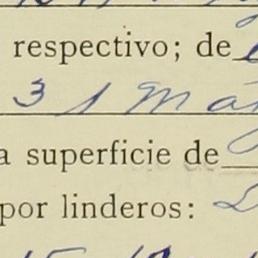 respectivo; de
31 Ma
a superficie de
por linderos: